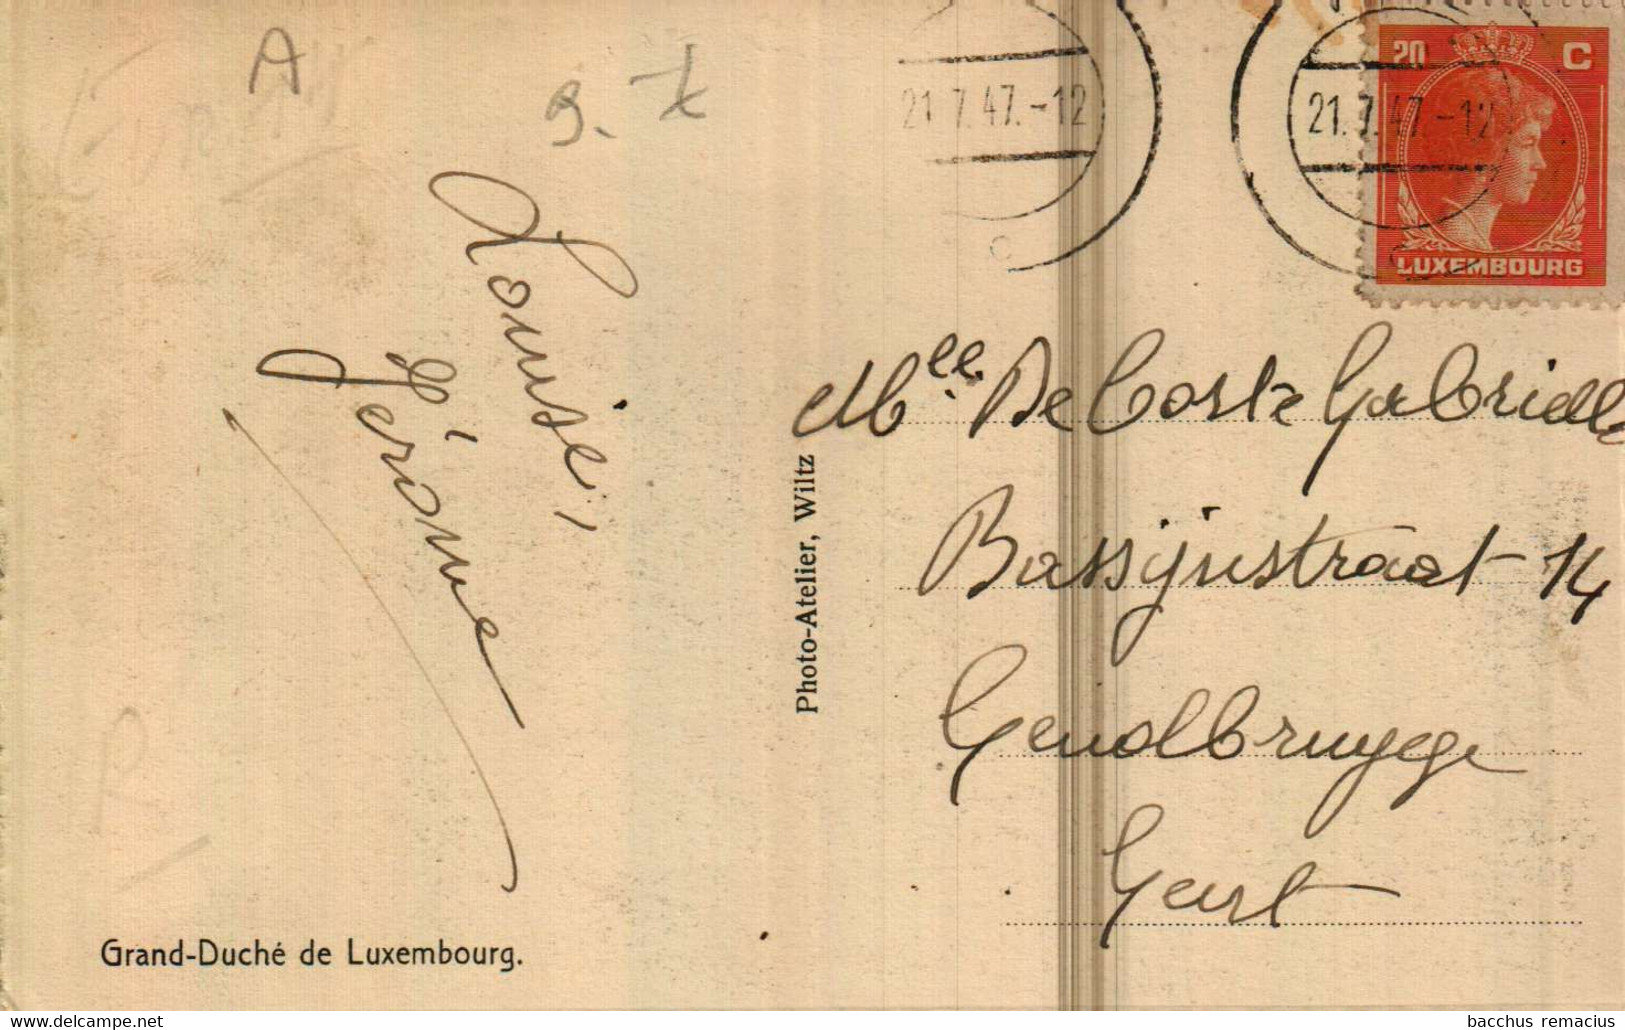 A
9. -
21.7.47.-12
21.7.47.-12
C
20 C
LUXEMBOURG
Louise,
Jérôme
Photo-Atelier, Wiltz
Mlle. De Coste Gabrielle
Bassijnstraat 14
Gendbruyge
Gent
Grand-Duché de Luxembourg.
bacchus remacius
www.delcampe.net